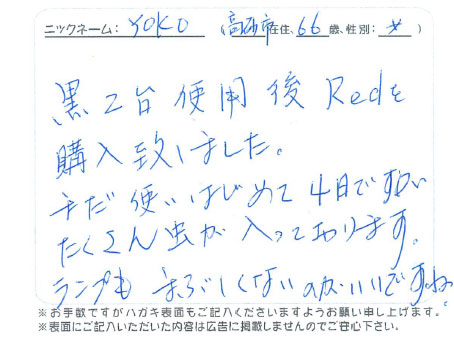 ニックネーム: YOKO 高砂市在住、66歳、性別: 女 )
黒2台使用後Redを
購入致しました。
まだ使いはじめて4日ですが
たくさん虫が入っております。
ランプも まぶしくないのがいいですね
※お手数ですがハガキ表面もご記入くださいますようお願い申し上げます。
※表面にご記入いただいた内容は広告に掲載しませんのでご安心下さい。